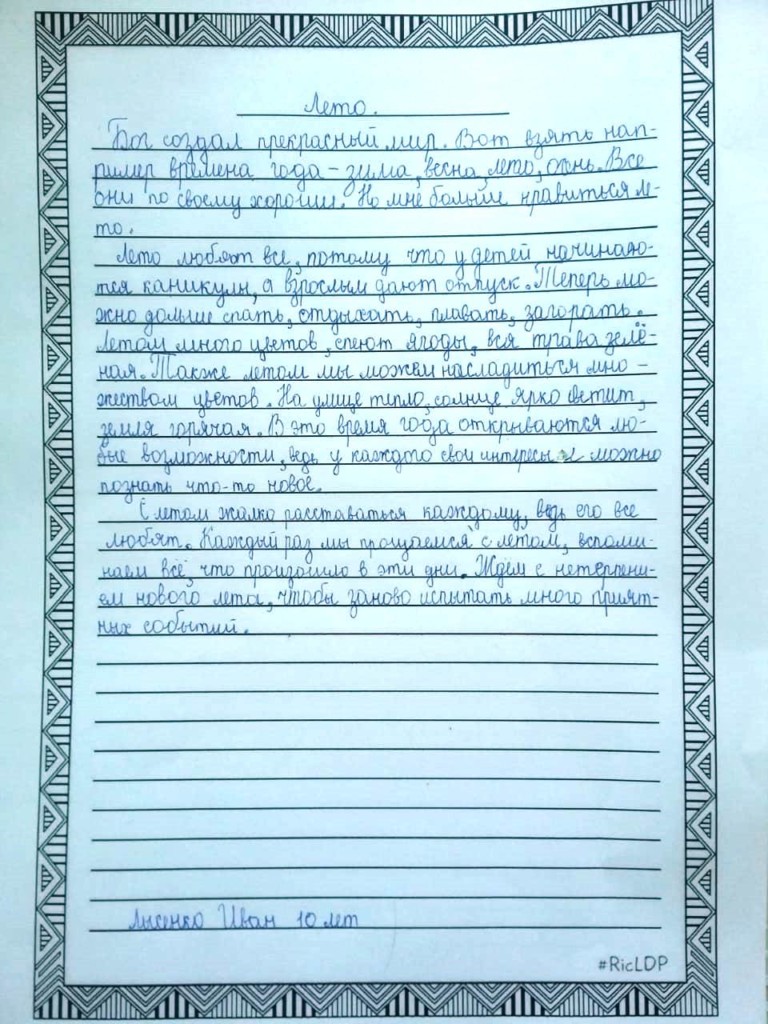 Лето.
Бог создал прекрасный мир. Вот взять нап-
ример времена года - зима, весна, лето, осень. Все
они по своему хороши. Но мне больше нравиться ле-
то.
Лето любят все, потому что у детей начинаю-
тся каникулы, а взрослым дают отпуск. Теперь мо-
жно дольше спать, отдыхать, плавать, загорать.
Летом много цветов, спеют ягоды, вся трава зелё-
ная. Также летом мы можем насладиться мно-
жеством цветов. На улице тепло, солнце ярко светит,
земля горячая. В это время года открываются лю-
бые возможности, ведь у каждого свои интересы и можно
познать что-то новое.
С летом жалко расставаться каждому, ведь его все
любят. Каждый раз мы прощаемся с летом, вспоми-
наем всё, что произошло в эти дни. Ждём с нетерпени-
ем нового лета, чтобы заново испытать много прият-
ных событий.
Лысенко Иван 10 лет
#RicLDP